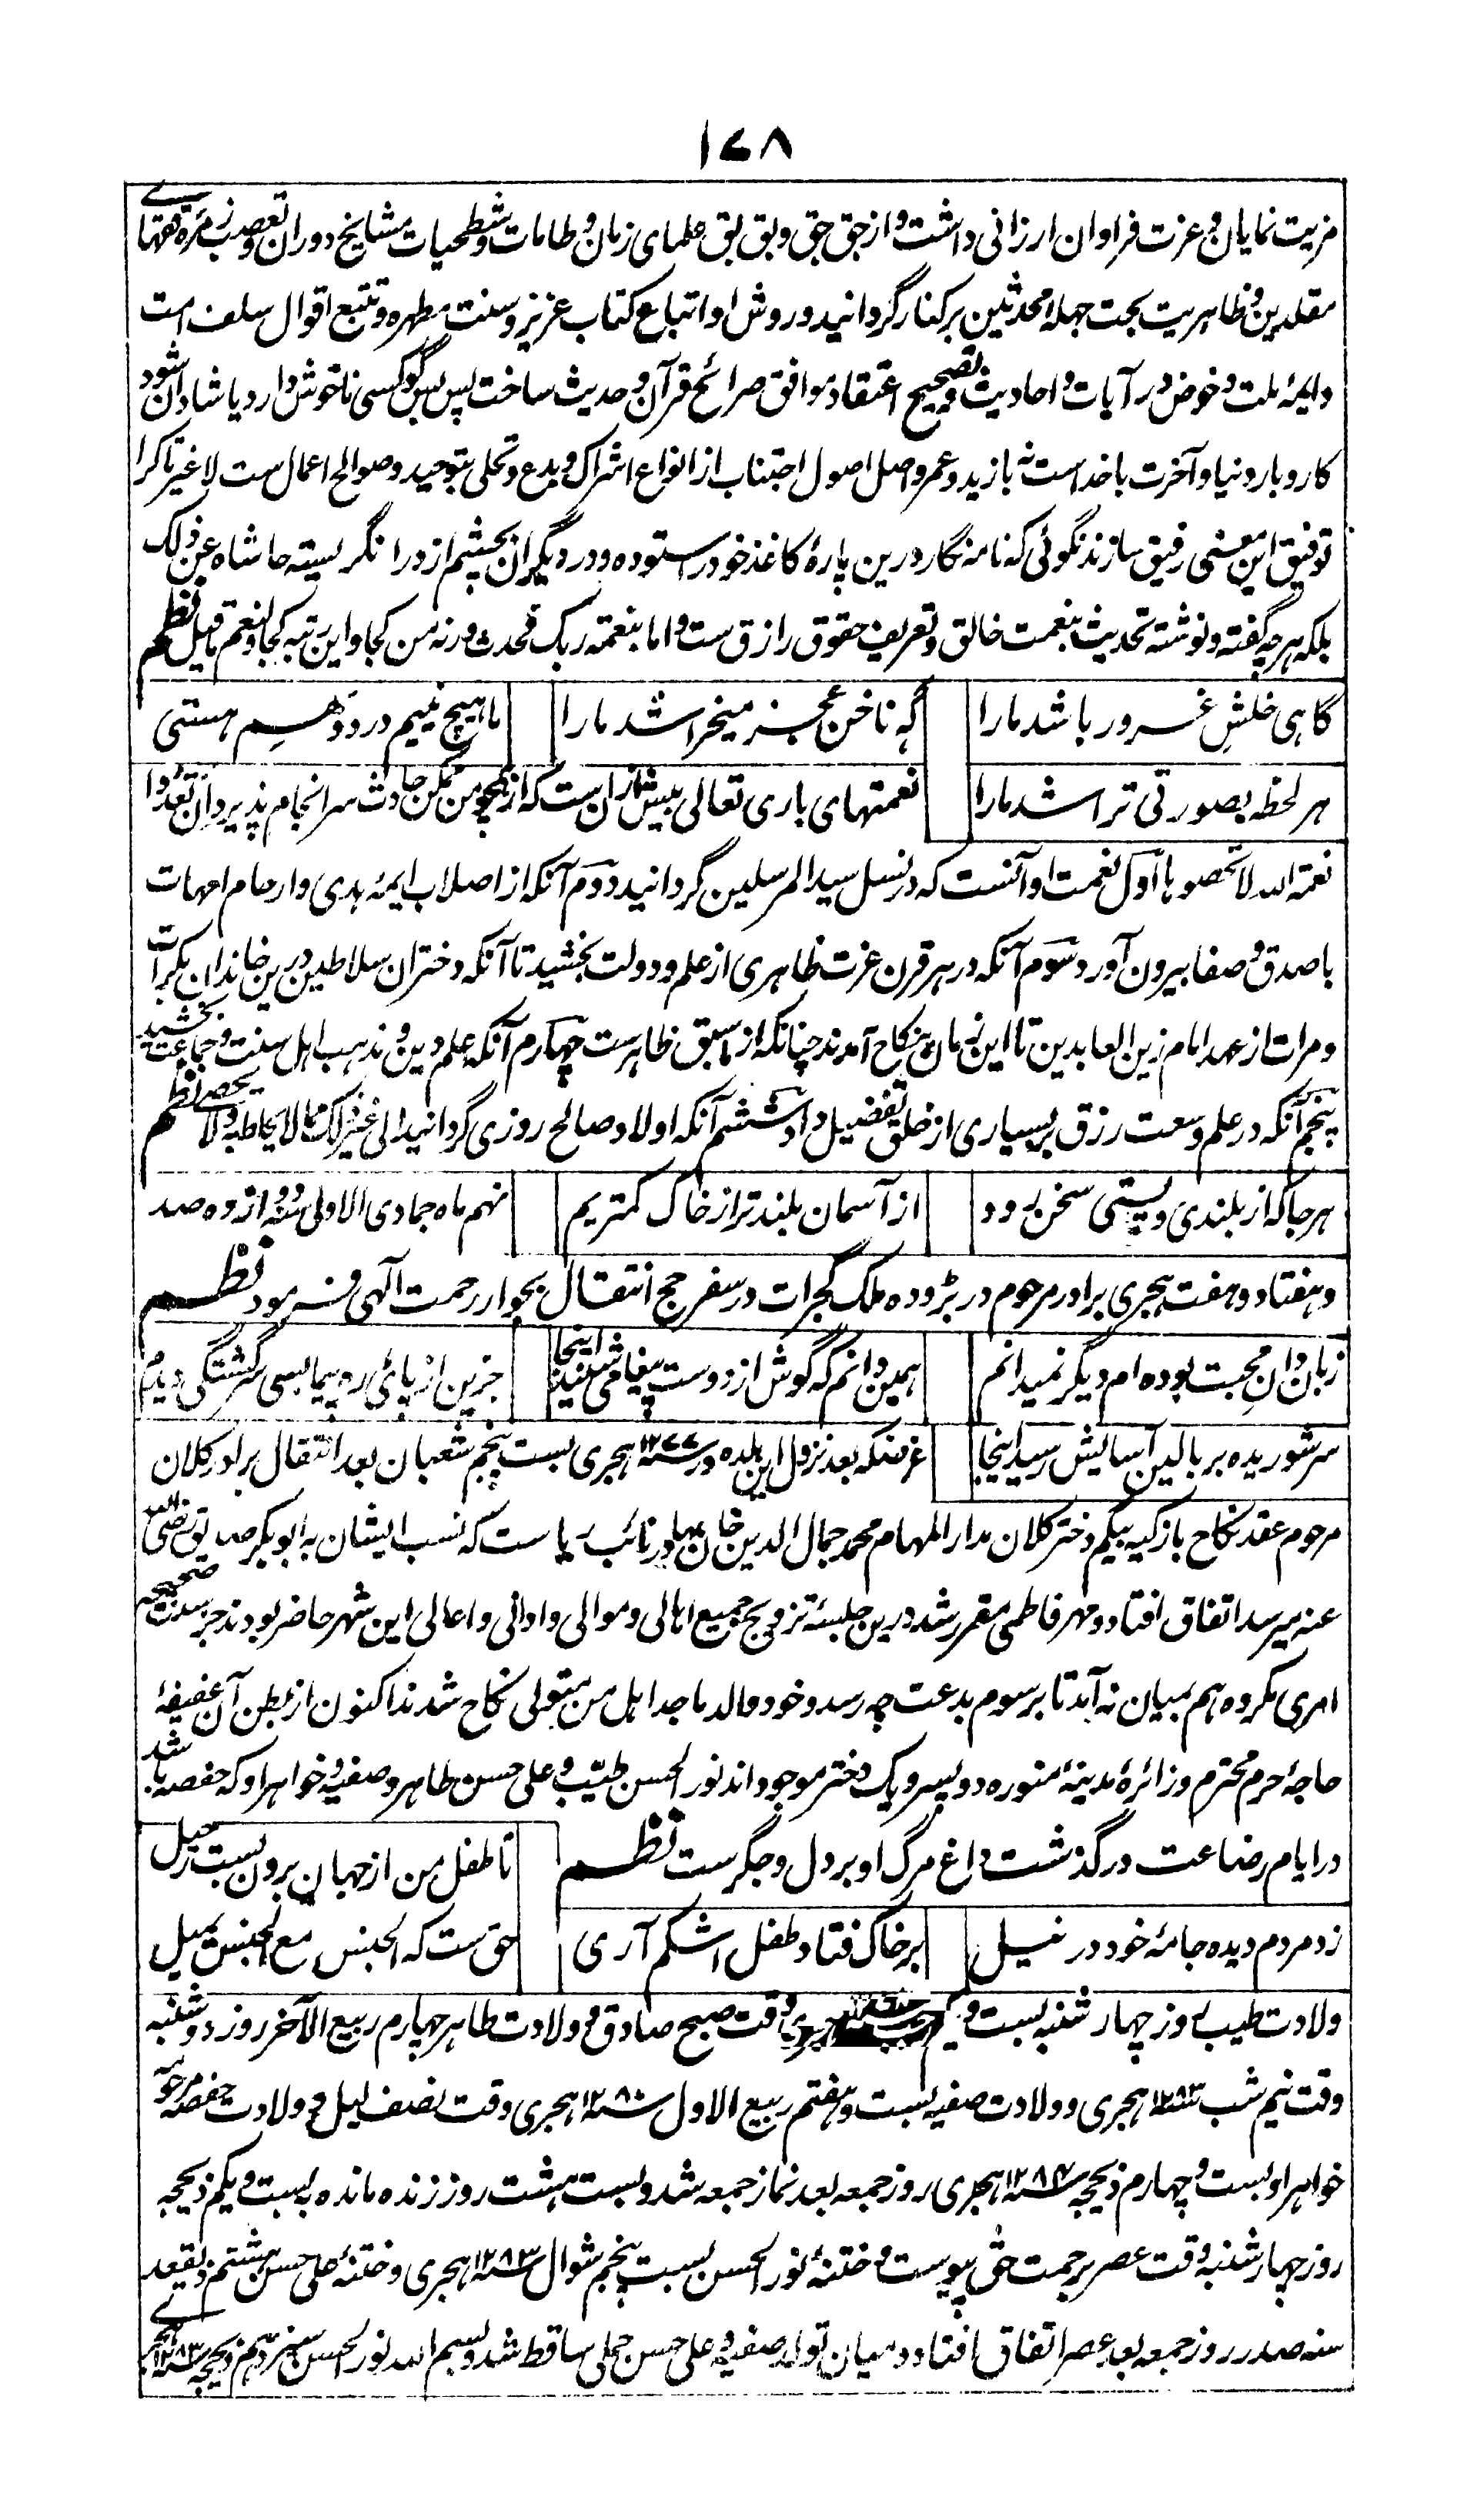 ۱۷۸
مزیت نمایان و عزت فراوان ارزانی داشت و از جق جق و بق بق علمای زمان و طامات و شطحیات مشایخ دوران و تعصب زمرۀ فقهای
مقلدین و ظاهریت بحت جهله محدثین برکنار گردانید و روش او اتباع کتاب عزیز و سنت مطهره و تتبع اقوال سلف امت
و ایمۀ ملت و خوض در آیات و احادیث و تصحیح اعتقاد موافق صرائح قرآن و حدیث ساخت پس بس گو کسی ناخوش دارد یا شادان شود
کاروبار دنیا و آخرت با خداست نه با زید و عمرو اصل اصول اجتناب از انواع اشراک و بدع و تحلی بتوحید و صوالح اعمال ست لا غیر تا کرا
توفیق این معنی رفیق سازند نگوئی که نامه نگار درین پارۀ کاغذ خود را ستوده و در دیگران بچشم ازدرا نگریسته حاشاه عن ذلک
بلکه هر چه گفته و نوشته تحدیث بنعمت خالق و تعریف حقوق رازق ست و اما بنعمة ربک فحدث ورنه من کجا و این رتبه کجا و لنعم ما قیل نظم
گاهی خلشِ غرور باشد مارا گه ناخن عجز میخراشد مارا ما هیچ نییم در دو وهم هستی
هر لحظه بصورتی تراشد مارا نعمتهای باری تعالی بیش از ان ست که از همچو من ممکن حادث سرانجام پذیرد و ان تعدوا
نعمة الله لا تحصوها اول نعمت او آنست که در نسل سید المرسلین گردانید دوم آنکه از اصلاب ایمۀ هدی و ارحام امهات
با صدق و صفا بیرون آورد سوم آنکه در هر قرن عزت ظاهری از علم و دولت بخشید تا آنکه دختران سلاطین درین خاندان بکرات
و مرات از عهد امام زین العابدین تا این زمان بنکاح آمدند چنانکه از ما سبق ظاهرست چهارم آنکه علم دین و مذهب اهل سنت و جماعت بخشید
پنجم آنکه در علم و سعت رزق بر بسیاری از خلق تفضیل داد ششم آنکه اولاد صالح روزی گردانید الی غیر ذلک مما لا یحاط به و لا یحصی نظم
هر جا که از بلندی و پستی سخن رود از آسمان بلندتر از خاک کمتریم نهم ماه جمادی الاولی سنه دوازده صد
و هفتاد و هفت هجری برادر مرحوم در بڑوده ملک گجرات در سفر حج انتقال بجوار رحمت آلهی فرمود نظم
زبان دانِ محبت بوده ام دیگر نمیدانم همین دانم که گوش از دوست پیغامی شنید اینجا حزین از پای ره پیما بسی سرگشتگی دیدم
سر شوریده بر بالین آسایش رسید اینجا غرضکه بعد نزول این بلده در سنه ۱۲۷۷ هجری بست پنجم شعبان بعد انتقال برادر کلان
مرحوم عقد نکاح با زکیه بیگم دختر کلان مدار المهام محمد جمال الدین خان بهادر نائب ریاست که نسب ایشان به ابوبکر صدیق رضی الله
عنه میرسد اتفاق افتاد و مهر فاطمی مقرر شد درین جلسۀ تزویج جمیع اهالی و موالی و ادانی و اعالی این شهر حاضر بودند جز سنت صحیحه
امری مکروه هم بمیان نه آمد تا برسوم بدعت چه رسد و خود والد ماجد اهل من متولی نکاح شدند اکنون از بطن آن عفیفۀ
حاجۀ حرم محترم و زائرۀ مدینۀ منوره دو پسر و یک دختر موجود اند نور الحسن طیب و علی حسن طاهر و صفیه و خواهر او که حفصه باشد
در ایام رضاعت درگذشت داغ مرگ او بر دل و جگرست نظم تا طفل من از جهان برون بست رحیل
زد مردم دیده جامۀ خود در نیل بر خاک فتاد طفل اشکم آری حق ست که الجنس مع الجنس یمیل
ولادت طیب روز چهار شنبه بست و یکم رجب هجری وقت صبح صادق و ولادت طاهر چهارم ربیع الآخر روز دوشنبه
وقت نیم شب سنه ۱۲۸۳ هجری و ولادت صفیه بست و هفتم ربیع الاول سنه ۱۲۸۰ هجری وقت نصف لیل و ولادت حفصه مرحومه
خواهر او بست و چهارم ذیحجه سنه ۱۲۸۴ هجری روز جمعه بعد نماز جمعه شد و بست هشت روز زنده مانده به بست و یکم ذیحجه
روز چهارشنبه وقت عصر برحمت حق پیوست و ختنۀ نور الحسن بست پنجم شوال سنه ۱۲۸۳ هجری و ختنۀ علی حسن هشتم ذیقعد
سنه صدر روز جمعه بعد عصر اتفاق افتاد و میان تولد صفیه و علی حسن حملی ساقط شد و بسم الله نور الحسن سیزدهم ذیحجه سنه ۱۲۸۳ هجری